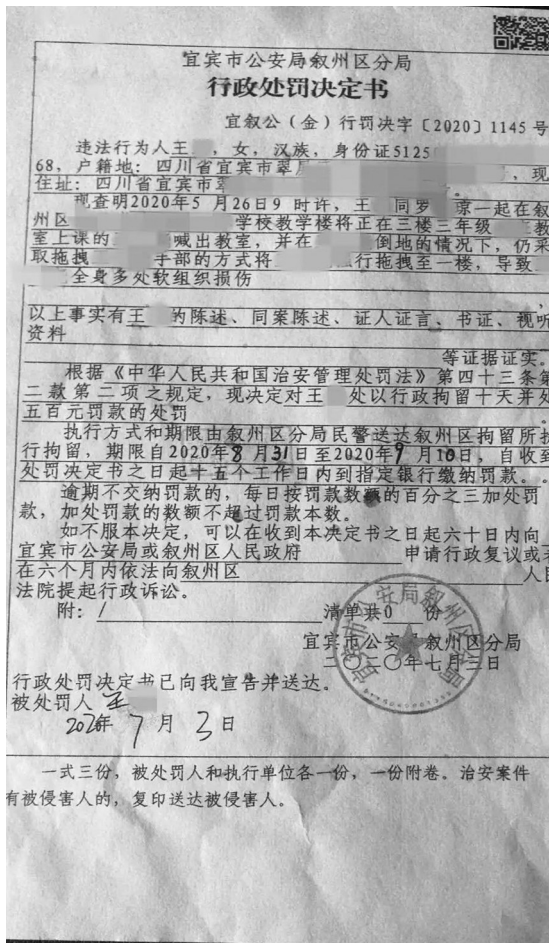 宜宾市公安局叙州区分局
行政处罚决定书
宜叙公（金）行罚决字〔2020〕1145号
违法行为人王，女，汉族，身份证5125
68，户籍地：四川省宜宾市翠，现
住址：四川省宜宾市
现查明2020年5月26日9时许，王同罗原一起在叙
州区学校教学楼将正在三楼三年级教
室上课的喊出教室，并在倒地的情况下，仍采
取拖拽手部的方式将行拖拽至一楼，导致
全身多处软组织损伤
以上事实有王的陈述、同案陈述、证人证言、书证、视听
资料
等证据证实。
根据《中华人民共和国治安管理处罚法》第四十三条第
二款第二项之规定，现决定对王处以行政拘留十天并处
五百元罚款的处罚
执行方式和期限由叙州区分局民警送达叙州区拘留所执
行拘留，期限自2020年8月31日至2020年9月10日，自收到
处罚决定书之日起十五个工作日内到指定银行缴纳罚款。。
逾期不交纳罚款的，每日按罚款数额的百分之三加处罚
款，加处罚款的数额不超过罚款本数。
如不服本决定，可以在收到本决定书之日起六十日内向
宜宾市公安局或叙州区人民政府 申请行政复议或者
在六个月内依法向叙州区 人民
法院提起行政诉讼。
附：/ 清单共0 份
宜宾市公安局叙州区分局
二〇二〇年七月三日
行政处罚决定书已向我宣告并送达。
被处罚人 王
2020年7月3日
一式三份，被处罚人和执行单位各一份，一份附卷。治安案件
有被侵害人的，复印送达被侵害人。